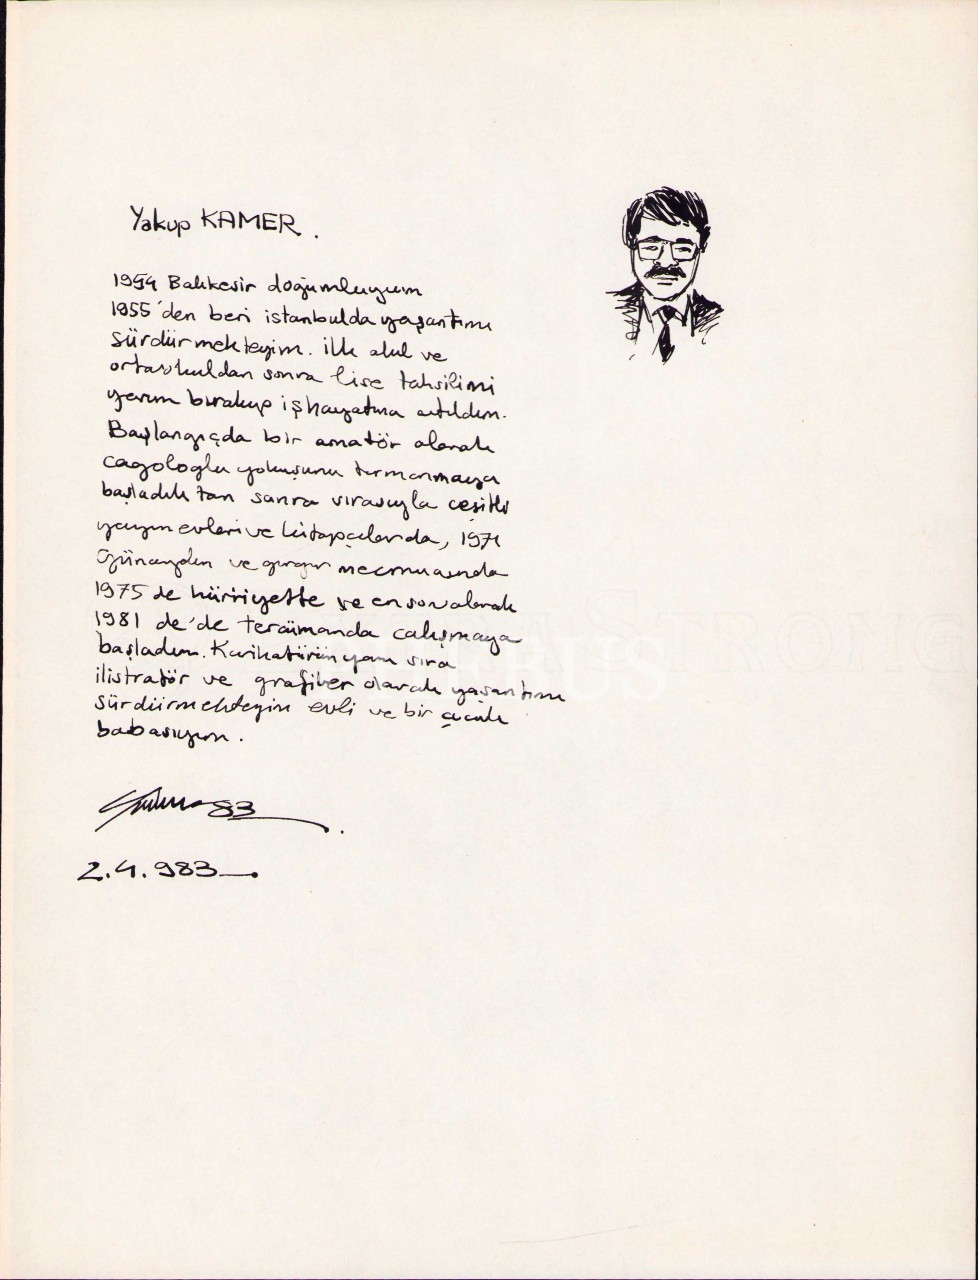 Yakup KAMER.
1954 Balıkesir doğumluyum
1955'den beri istanbulda yaşantımı
sürdürmekteyim. ilk okul ve
ortaokuldan sonra lise tahsilimi
yarım bırakıp iş hayatına atıldım.
Başlangıçda bir amatör olarak
cagologlu yokuşunu tırmanmaya
başladıktan sonra sırasıyla çeşitli
yayın evleri ve kitapçılarda, 1971
günaydın ve gırgır mecmuasında
1975 de hürriyette ve en son olarak
1981 de'de tercümanda çalışmaya
başladım. Karikatürün yanı sıra
ilistratör ve grafiker olarak yaşantımı
sürdürmekteyim evli ve bir çocuk
babasıyım.
83
2.4.983